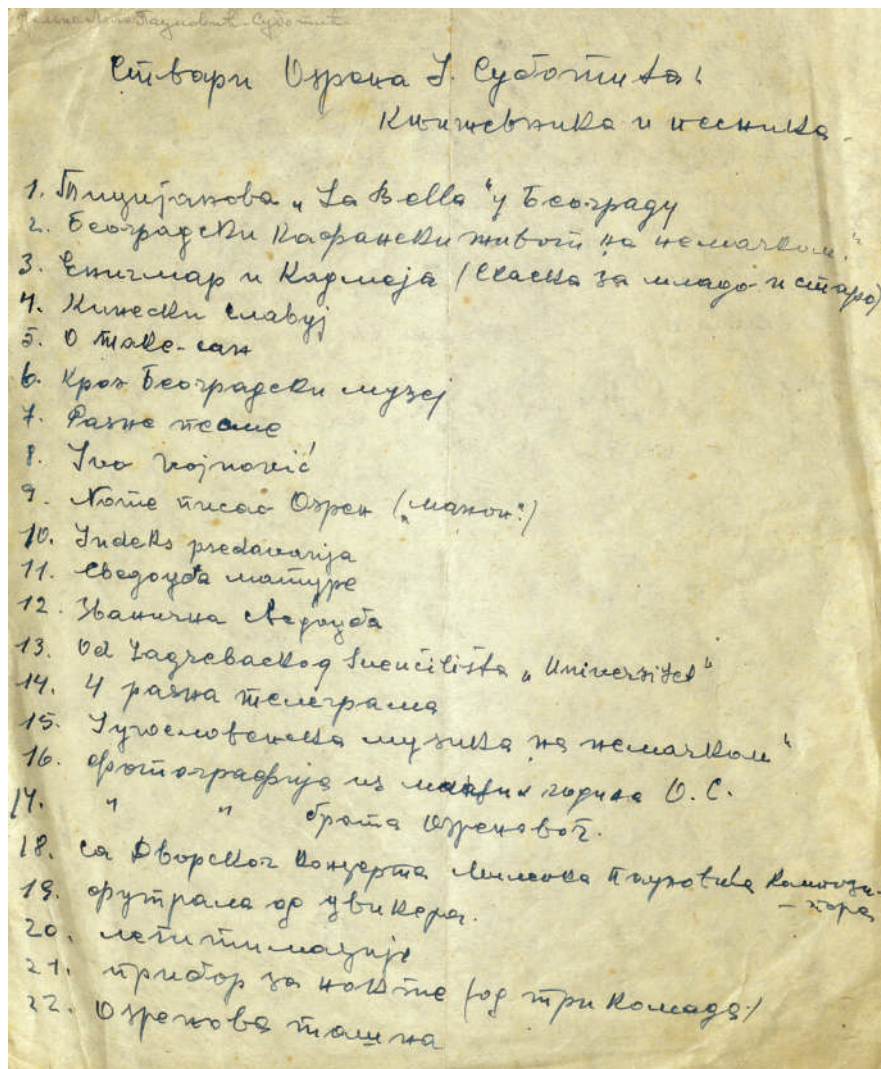 Јелена Лола Пауновић-Суботић
Ствари Озрена Ј. Суботића:
Књижевника и песника.
1. Тицијанова „La Bella" у Београду
2. Београдски кафански живот на немачком."
3. Енигмар и Кадмеја (Скаска за младо и старо)
4. Кинески славуј
5. О Таке-сан
6. Кроз Београдски музеј
7. Разне песме
8. Ivo Vojnović
9. Ноте писао Озрен („манон")
10. Indeks predavanja
11. Сведоџба матуре
12. Званична сведоџба
13. Od Zagrebačkog Sveučilišta „Univerzitet"
14. 4 разна телеграма
15. Југословенска музика на немачком"
16. фотографија из млађих година О. С.
17. " " брата Озреновог.
18. са Дворског концерта Миленка Пауновића компози-
- тора
19. футрала од цвикера.
20. легитимације
21. прибор за нокте (од три комада)
22. Озренова ташна